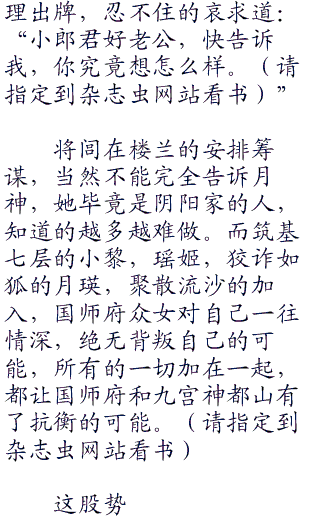 理出牌，忍不住的哀求道：
“小郎君好老公，快告诉
我，你究竟想怎么样。（请
指定到杂志虫网站看书）”
将闾在楼兰的安排筹
谋，当然不能完全告诉月
神，她毕竟是阴阳家的人，
知道的越多越难做。而筑基
七层的小黎，瑶姬，狡诈如
狐的月瑛，聚散流沙的加
入，国师府众女对自己一往
情深，绝无背叛自己的可
能，所有的一切加在一起，
都让国师府和九宫神都山有
了抗衡的可能。（请指定到
杂志虫网站看书）
这股势